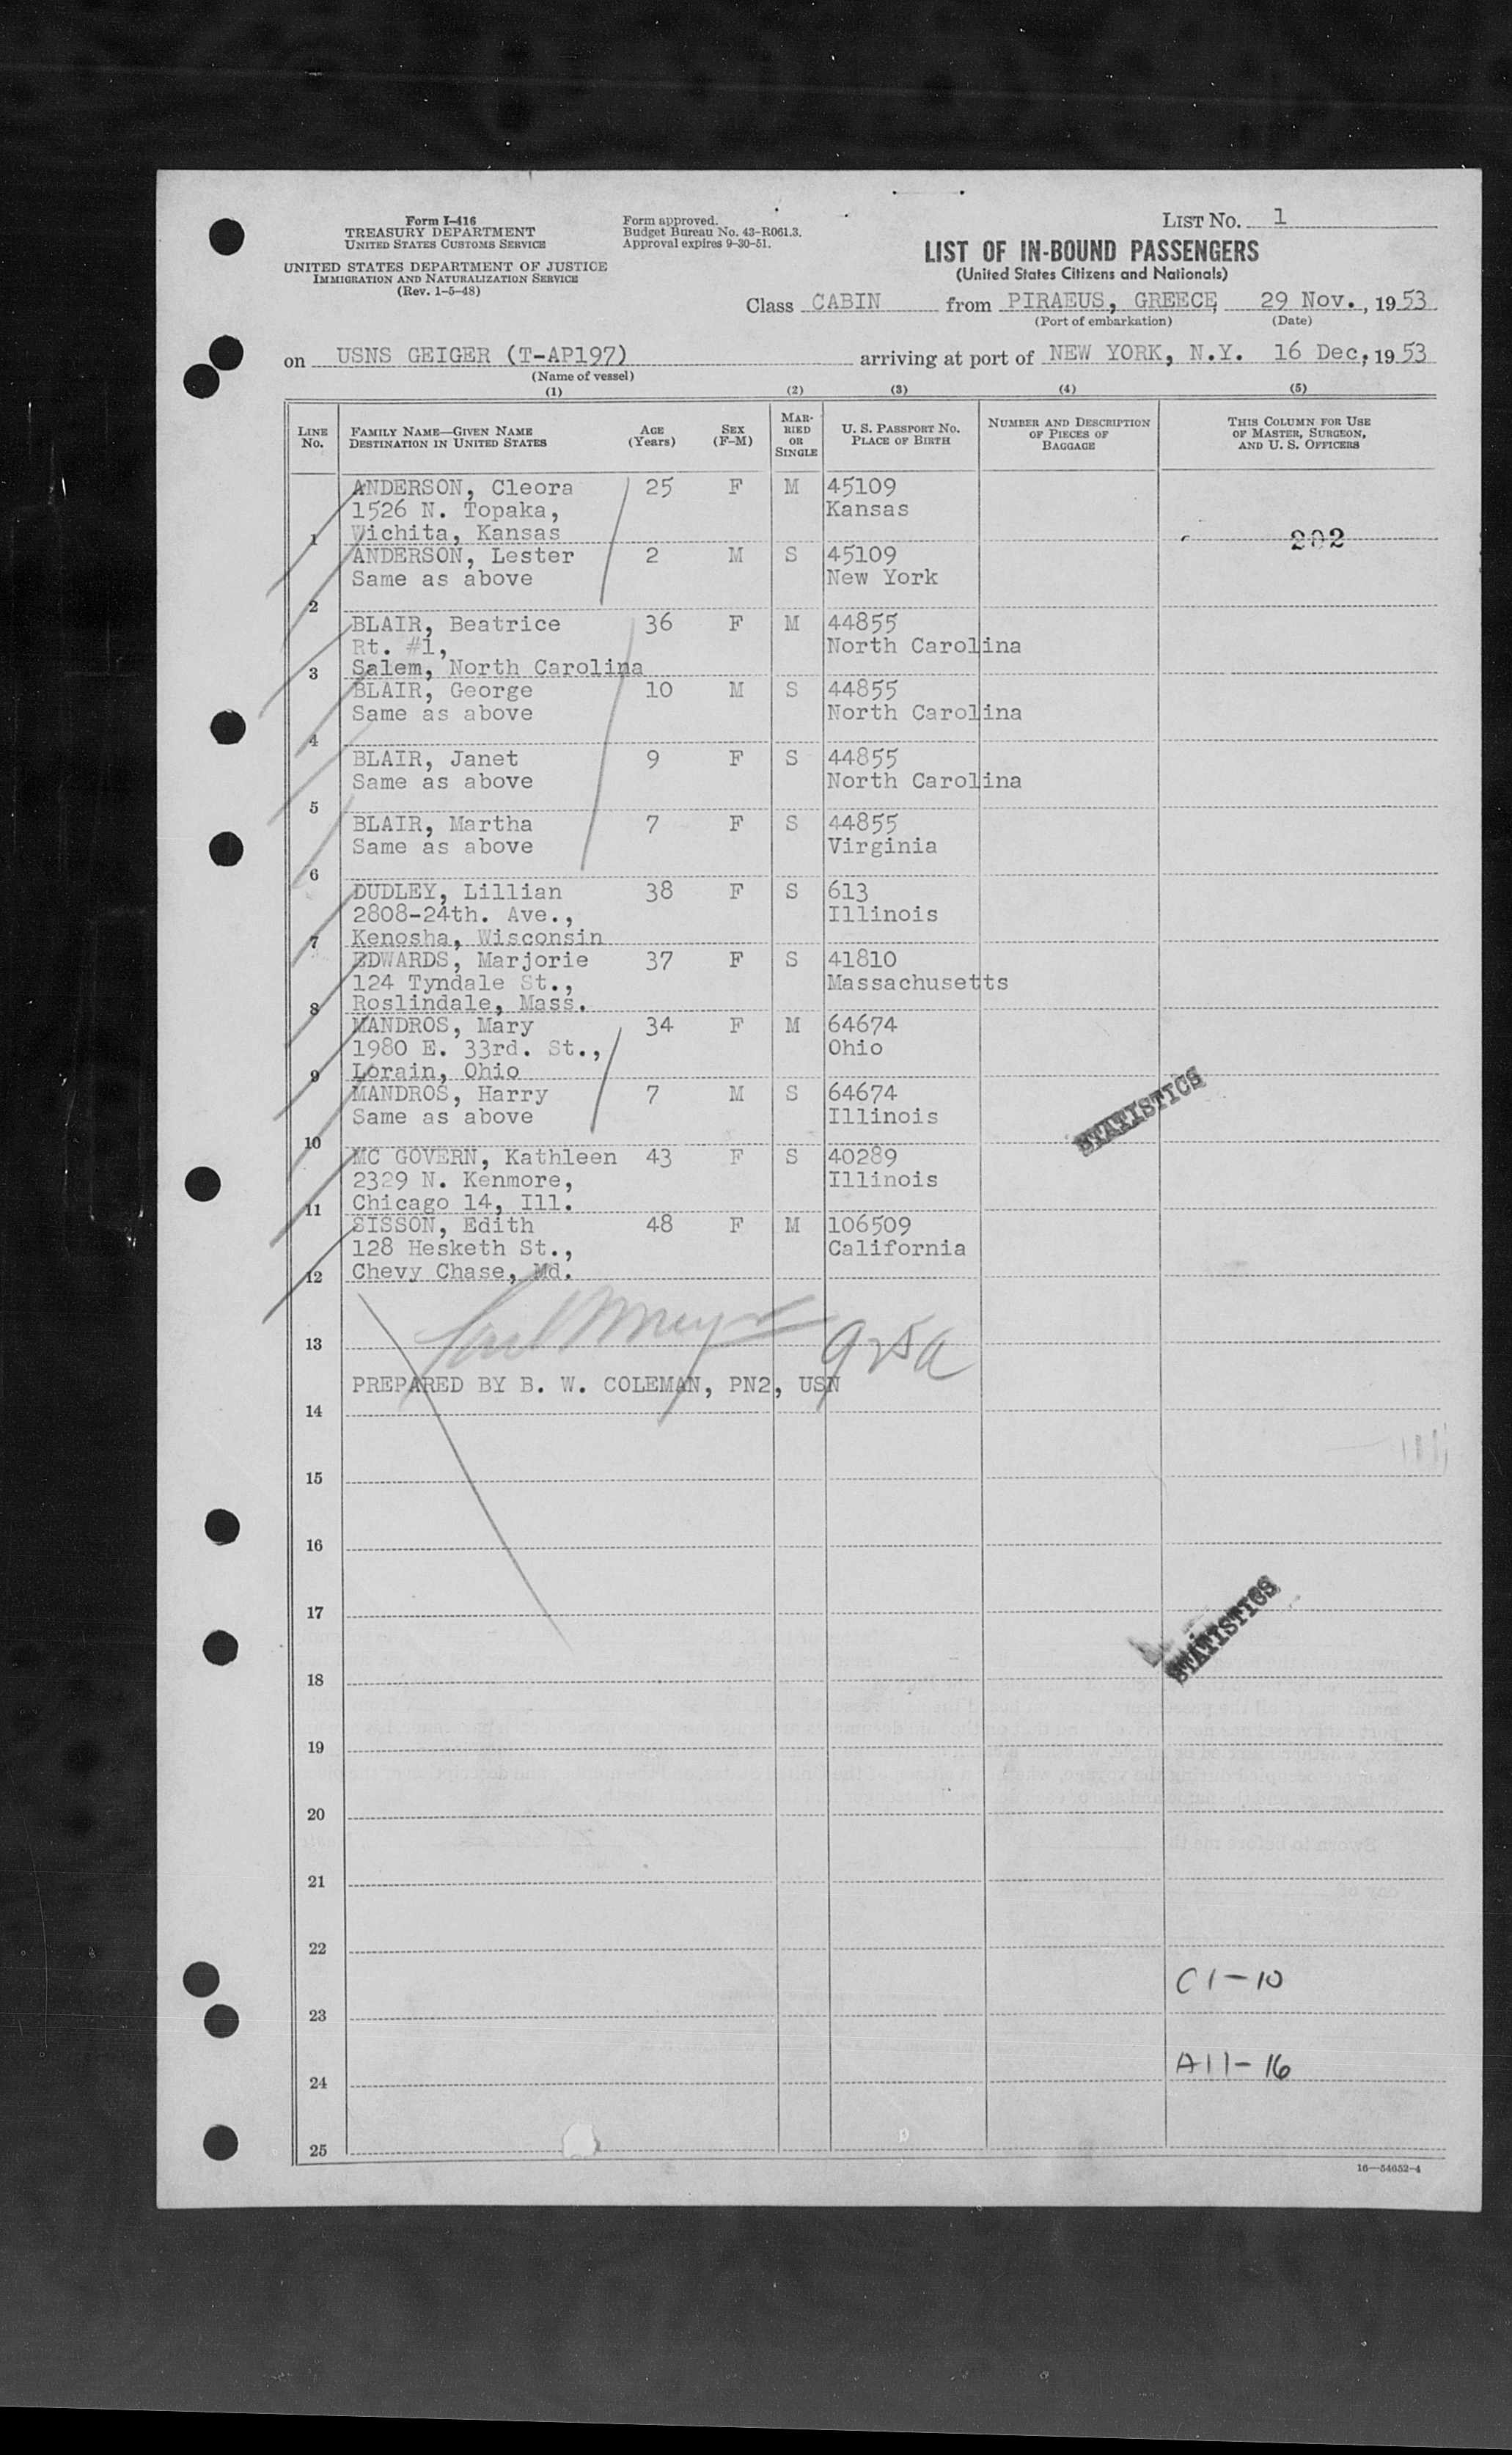 Form I-416
TREASURY DEPARTMENT
UNITED STATES CUSTOMS SERVICE
UNITED STATES DEPARTMENT OF JUSTICE
IMMIGRATION AND NATURALIZATION SERVICE
(Rev. 1-5-48)
Form approved.
Budget Bureau No. 43-R061.3.
Approval expires 9-30-51.
LIST NO. 1
LIST OF IN-BOUND PASSENGERS
(United States Citizens and Nationals)
Class CABIN from PIRAEUS, GREECE, 29 Nov., 1953
(Port of embarkation) (Date)
on USNS GEIGER (T-AP197) arriving at port of NEW YORK, N.Y. 16 Dec, 1953
(Name of vessel)
(1) (2) (3) (4) (5)
LINE NO. FAMILY NAME—GIVEN NAME DESTINATION IN UNITED STATES AGE (Years) SEX (F-M) MARRIED OR SINGLE U. S. PASSPORT NO. PLACE OF BIRTH NUMBER AND DESCRIPTION OF PIECES OF BAGGAGE THIS COLUMN FOR USE OF MASTER, SURGEON, AND U. S. OFFICERS
ANDERSON, Cleora 25 F M 45109
1526 N. Topaka, Kansas
1 Wichita, Kansas 202
ANDERSON, Lester 2 M S 45109
Same as above New York
2
BLAIR, Beatrice 36 F M 44855
Rt. #1, North Carolina
3 Salem, North Carolina
BLAIR, George 10 M S 44855
Same as above North Carolina
4
BLAIR, Janet 9 F S 44855
Same as above North Carolina
5
BLAIR, Martha 7 F S 44855
Same as above Virginia
6
DUDLEY, Lillian 38 F S 613
2808-24th. Ave., Illinois
7 Kenosha, Wisconsin
EDWARDS, Marjorie 37 F S 41810
124 Tyndale St., Massachusetts
8 Roslindale, Mass.
MANDROS, Mary 34 F M 64674
1980 E. 33rd. St., Ohio
9 Lorain, Ohio
MANDROS, Harry 7 M S 64674
Same as above Illinois
STATISTICS
10
MC GOVERN, Kathleen 43 F S 40289
2329 N. Kenmore, Illinois
11 Chicago 14, Ill.
SISSON, Edith 48 F M 106509
128 Hesketh St., California
12 Chevy Chase, Md.
13
PREPARED BY B. W. COLEMAN, PN2, USN
14
15
16
17
STATISTICS
18
19
20
21
22
C1-10
23
A11-16
24
25
16—54652-4